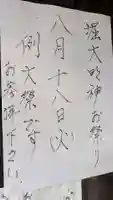 堀大明神お祭り
八月十八日(火)
例大祭です
お参拝下さい